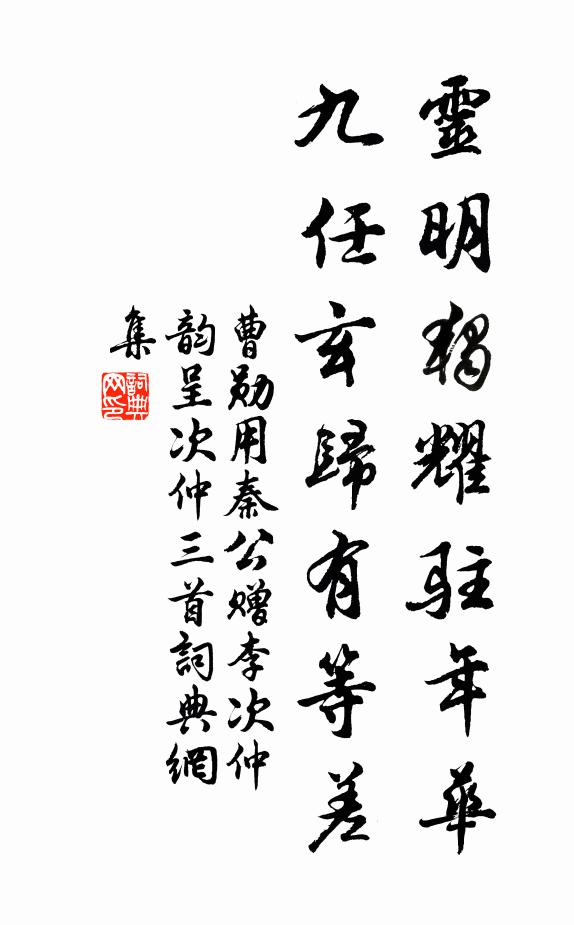 靈明獨耀駐年華
九任玄歸有等差
曹勛用秦公贈李次仲
韵呈次仲三首詞典網
集
詞典
网印